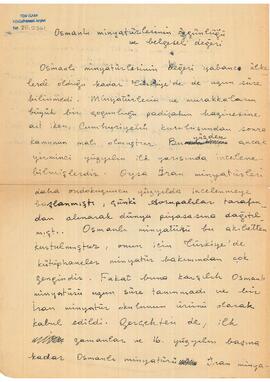 Osmanlı minyatürlerinin özgünlüğü
ve belgesel değeri
Osmanlı minyatürlerinin değeri yabancı ülke
lerde olduğu kadar Türkiye'de de uzun süre
bilinmedi. Minyatürlerin ve murakkaların
büyük bir çoğunluğu padişahın hazinesine
ait iken, Cumhuriyetin kuruluşundan sonra
kamunun malı olmuştur. Bu yüzden ancak
yirminci yüzyılın ilk yarısında incelene
bilmişlerdir. Oysa İran minyatürleri
daha ondokuzuncu yüzyılda incelenmeye
başlanmıştı, çünkü Avrupalılar tarafın
dan alınarak dünya piyasasına dağıl
mıştı. Osmanlı minyatürü bu akıbetten
kurtulmuştur, onun için Türkiye'de
kütüphaneler minyatür bakımından çok
zengindir. Fakat buna karşılık Osmanlı
minyatürü uzun süre tanınmadı ve bir
İran minyatür okulunun ürünü olarak
kabul edildi. Gerçekten de, ilk
zamanlar ve 16. yüzyılın başına
kadar Osmanlı minyatürü İran minya